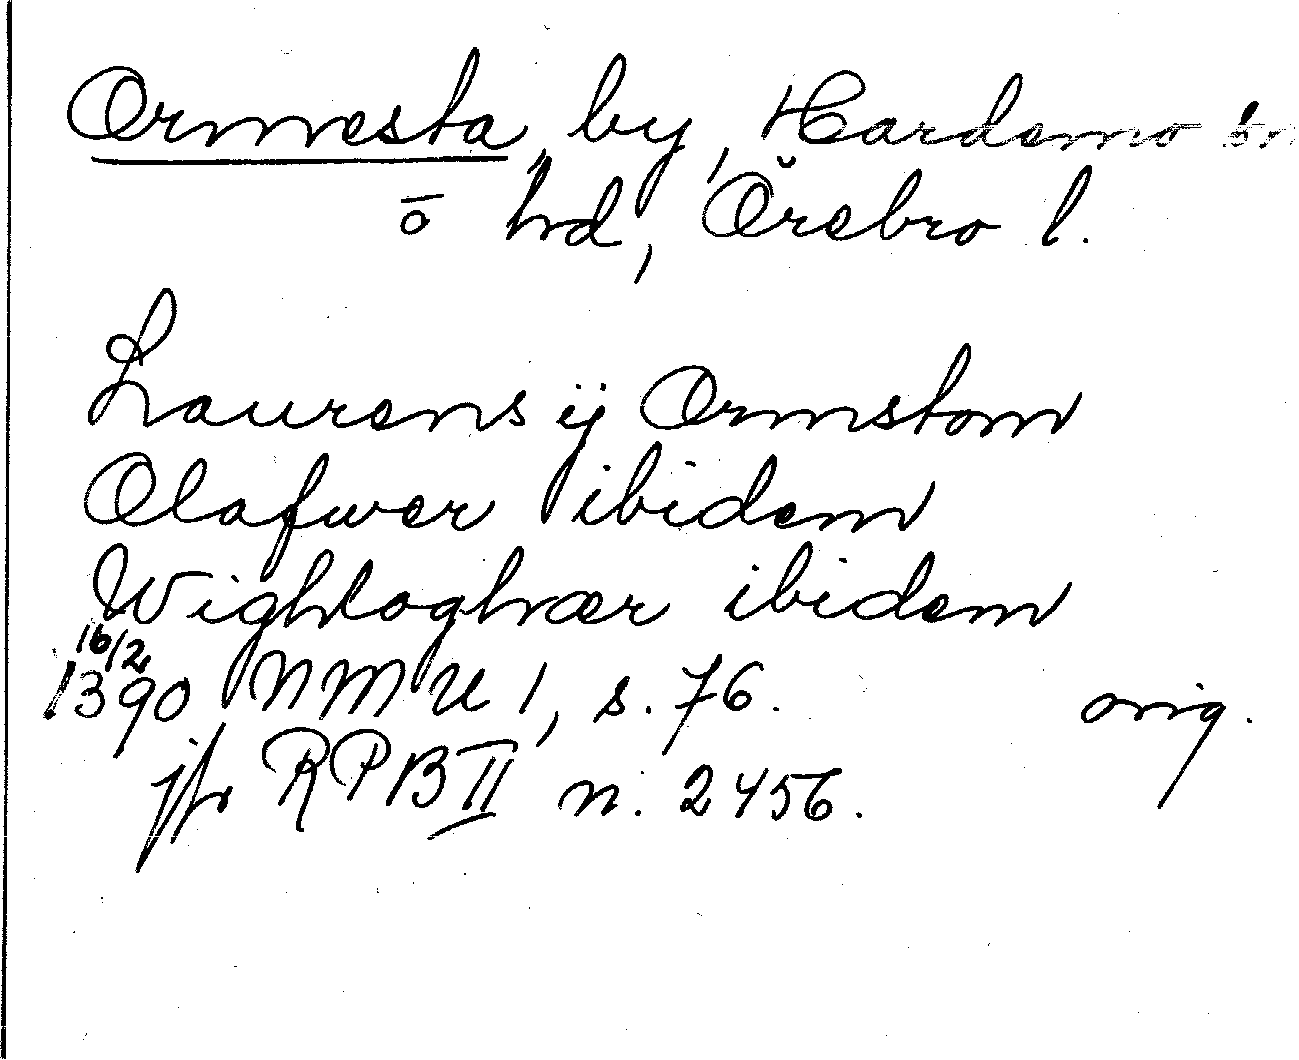 Ormesta, by, Hardemo sn
ō hd, Örebro l.
Laurens ij Ormstom
Olafwer ibidem
Wightoghær ibidem
16/2
1390 NMU 1, s. 76. orig.
jfr RPB II n. 2456.